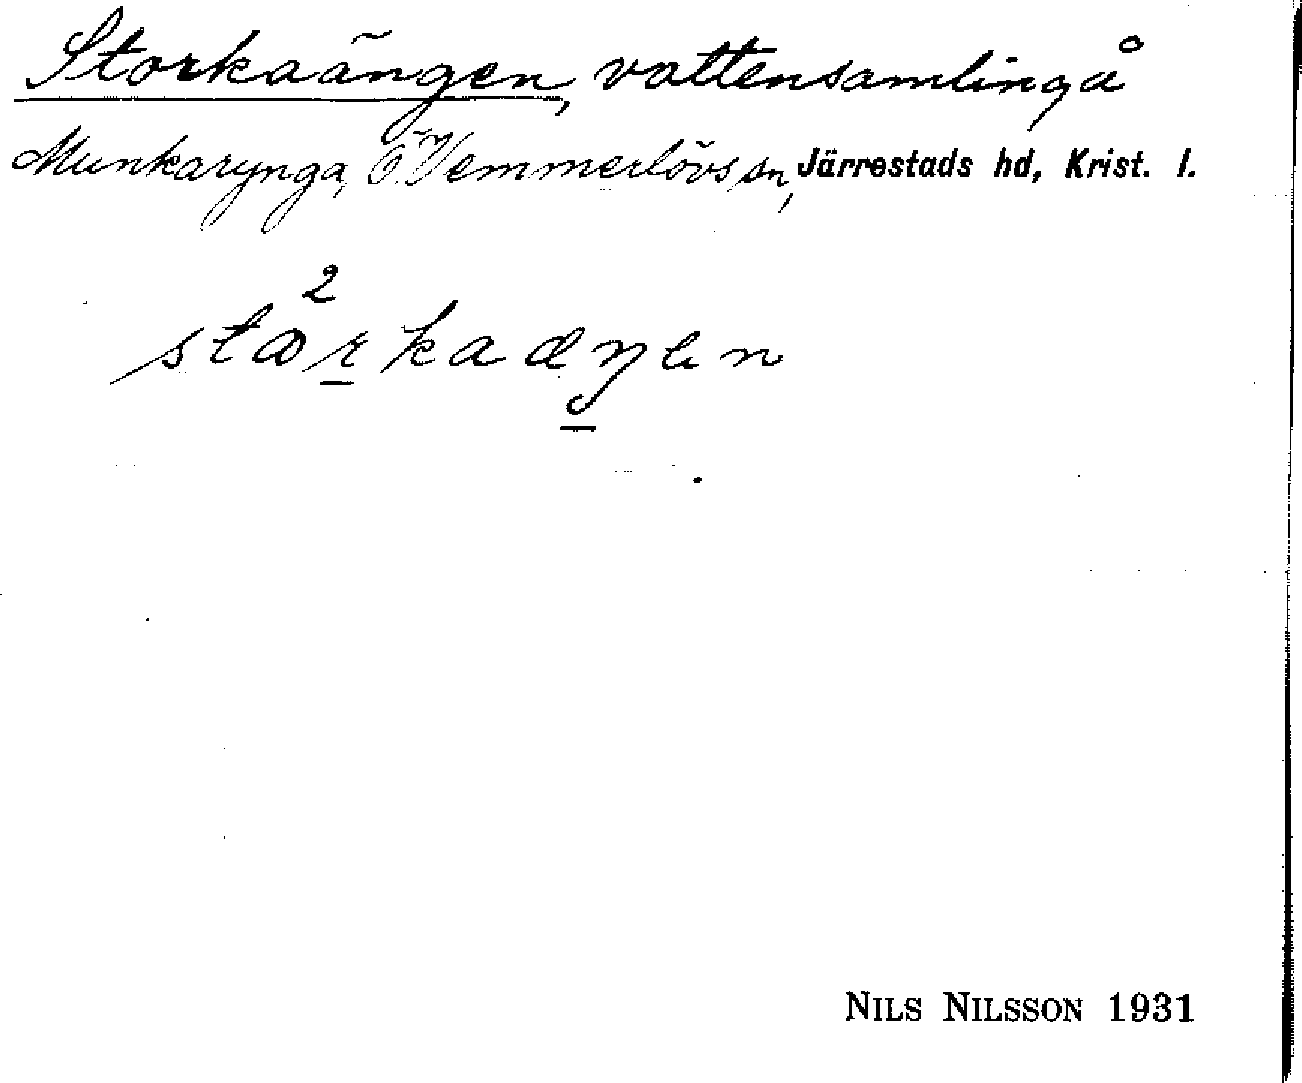 Storkaängen, vattensamling å
Munkarynga, Ö. Vemmerlövs sn, Järrestads hd, Krist. l.
2
NILS NILSSON 1931